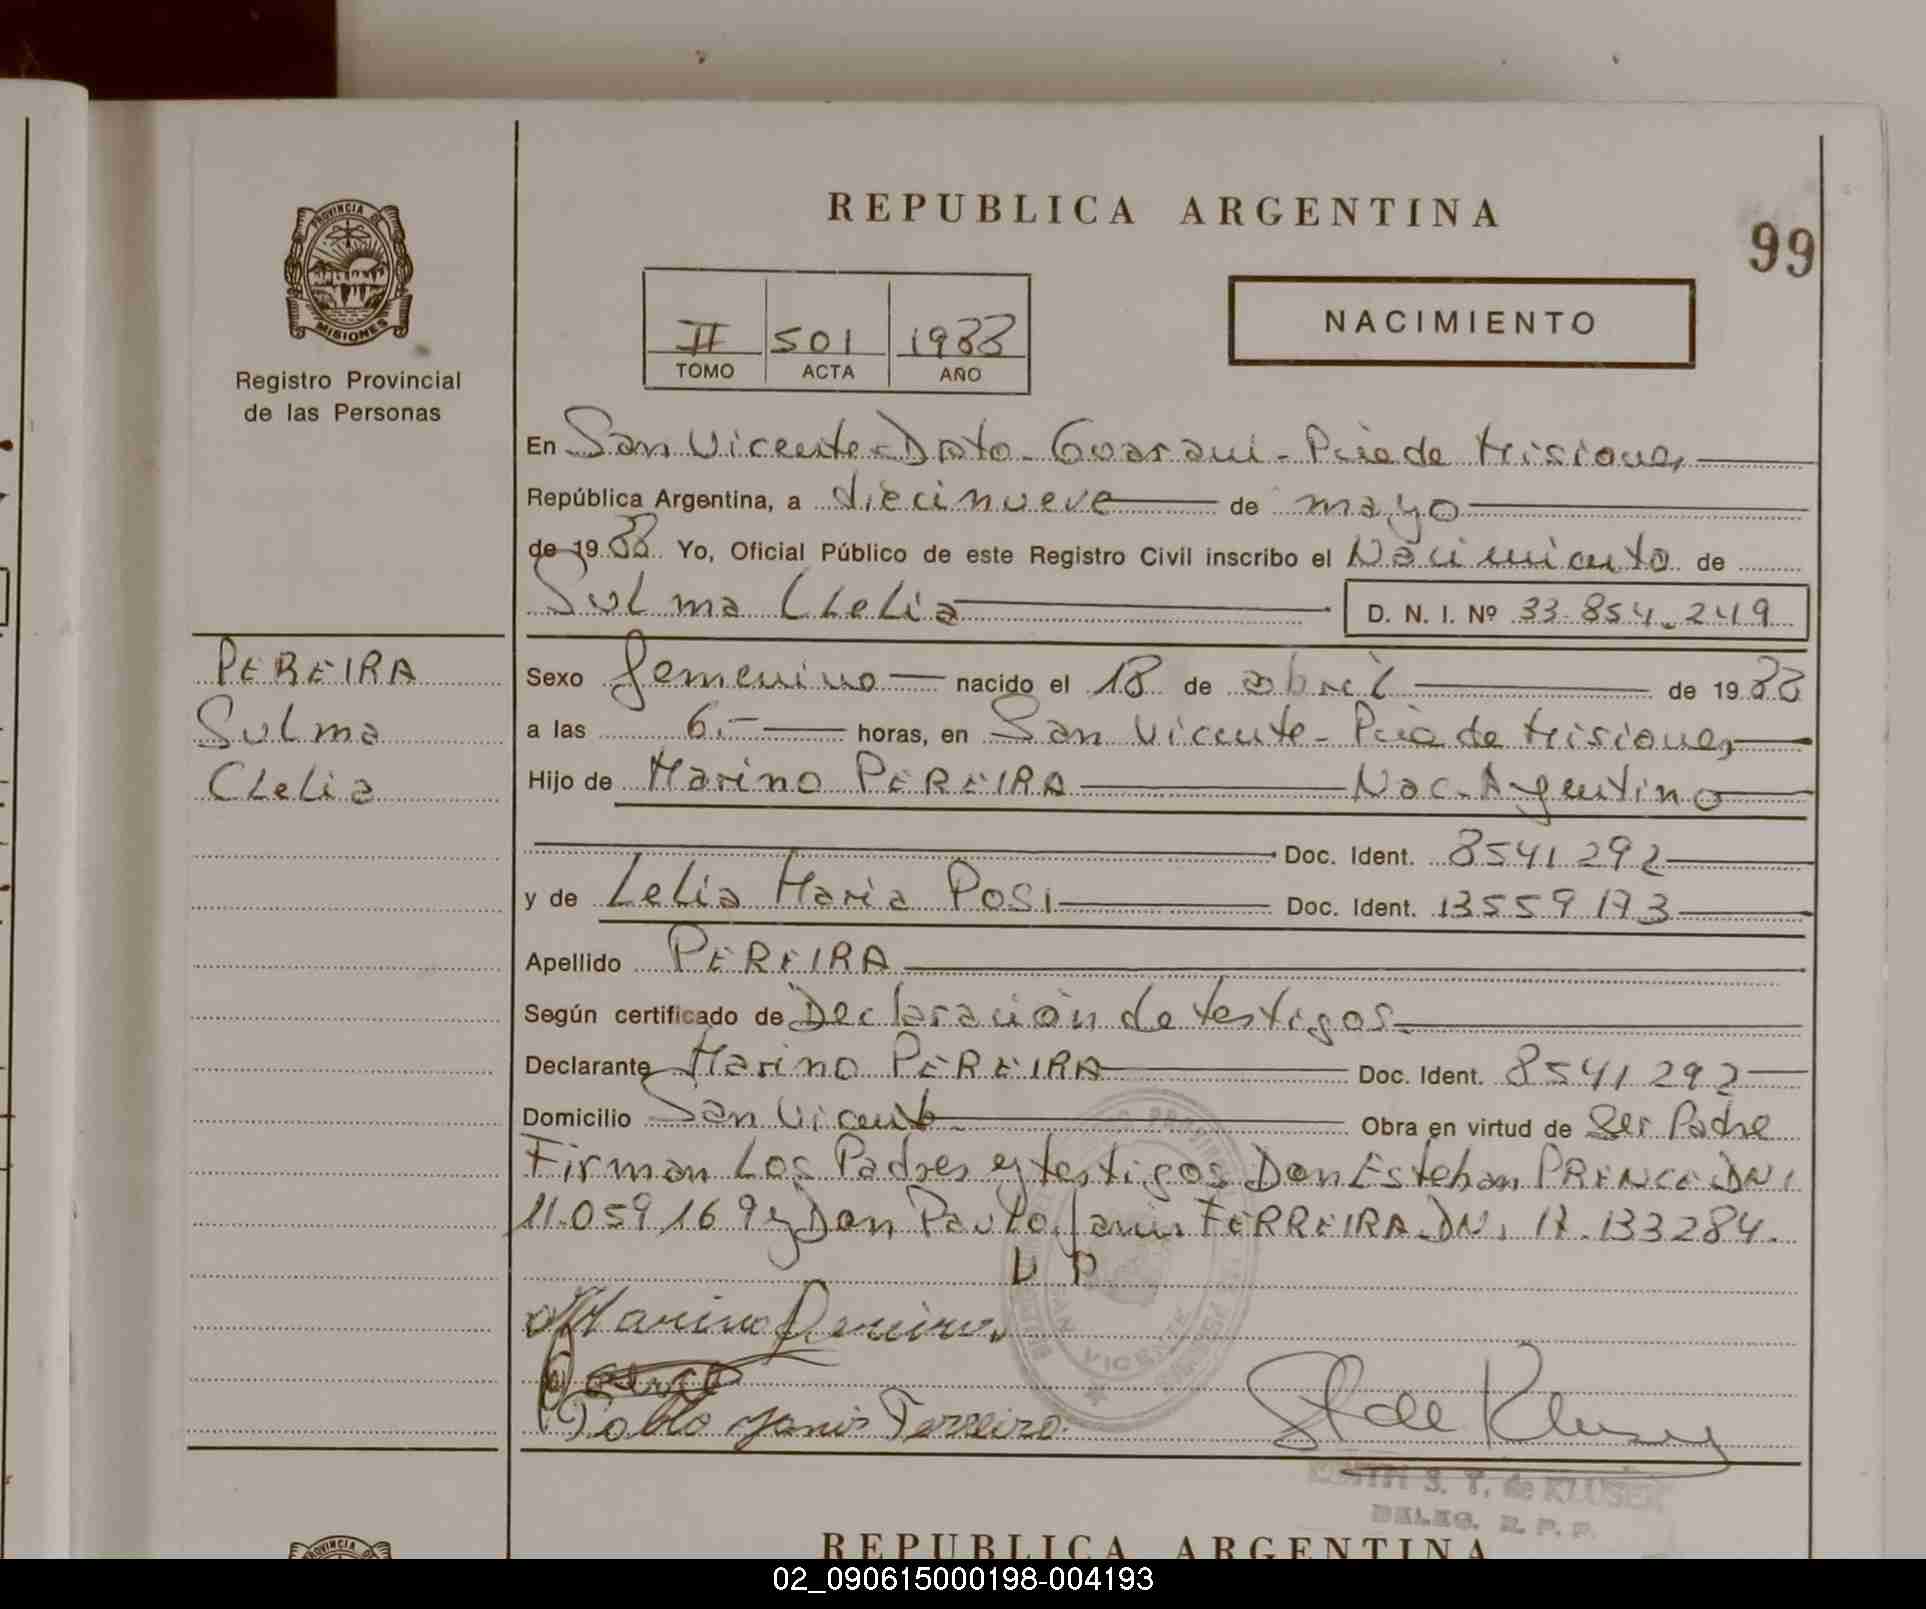 REPUBLICA ARGENTINA
99
PROVINCIA DE
MISIONES
Registro Provincial
de las Personas
II 501 1988
TOMO ACTA AÑO
NACIMIENTO
En San Vicente - Dpto. Guaraní - Pcia de Misiones
República Argentina, a diecinueve de mayo
de 1988 Yo, Oficial Público de este Registro Civil inscribo el Nacimiento de
Sulma CLelia D. N. I. Nº 33.854.249
PEREIRA
Sulma
CLelia
Sexo femenino nacido el 18 de abril de 1988
a las 6.- horas, en San Vicente - Pcia de Misiones
Hijo de Marino PEREIRA Nac. Argentino
Doc. Ident. 8541292
y de Lelia Maria POSI Doc. Ident. 13559173
Apellido PEREIRA
Según certificado de Declaración de testigos.
Declarante Marino PEREIRA Doc. Ident. 8541292
Domicilio San Vicente Obra en virtud de Ser Padre
Firman Los Padres y testigos Don Esteban DNI
11.059169 y Don Paulo FERREIRA DNI 17.133284.
L P
Marino Pereira
Pablo Janis Ferreira
SAN VICENTE
S. T. de KLUSER
DELEG. R. P. P.
PROVINCIA DE
REPUBLICA ARGENTINA
02_090615000198-004193